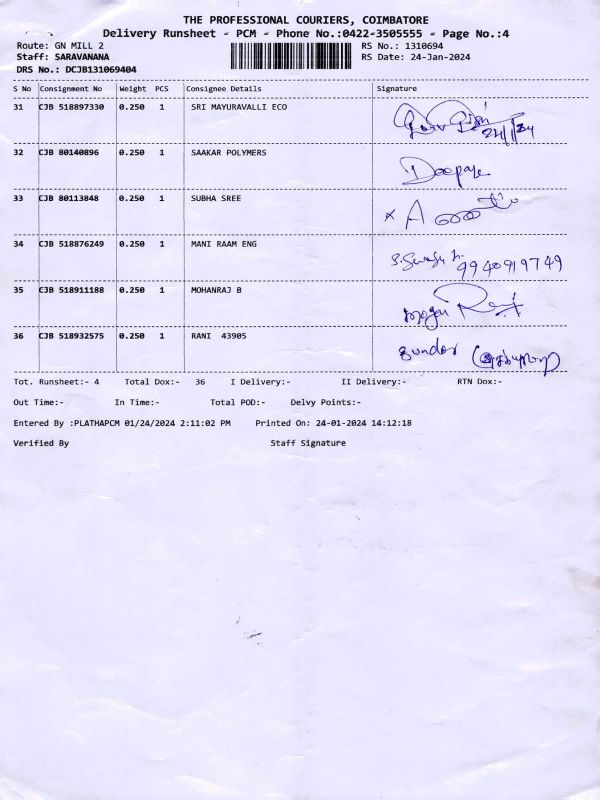 THE PROFESSIONAL COURIERS, COIMBATORE
Delivery Runsheet - PCM - Phone No.:0422-3505555 - Page No.:4
Route: GN MILL 2 RS No.: 1310694
Staff: SARAVANANA RS Date: 24-Jan-2024
DRS No.: DCJB131069404
S No Consignment No Weight PCS Consignee Details Signature
31 CJB 518897330 0.250 1 SRI MAYURAVALLI ECO 24/1/24
32 CJB 80140896 0.250 1 SAAKAR POLYMERS
33 CJB 80113848 0.250 1 SUBHA SREE
34 CJB 518876249 0.250 1 MANI RAAM ENG 9940919749
35 CJB 518911188 0.250 1 MOHANRAJ B
36 CJB 518932575 0.250 1 RANI 43905 Sundar
Tot. Runsheet:- 4 Total Dox:- 36 I Delivery:- II Delivery:- RTN Dox:-
Out Time:- In Time:- Total POD:- Delvy Points:-
Entered By :PLATHAPCM 01/24/2024 2:11:02 PM Printed On: 24-01-2024 14:12:18
Verified By Staff Signature